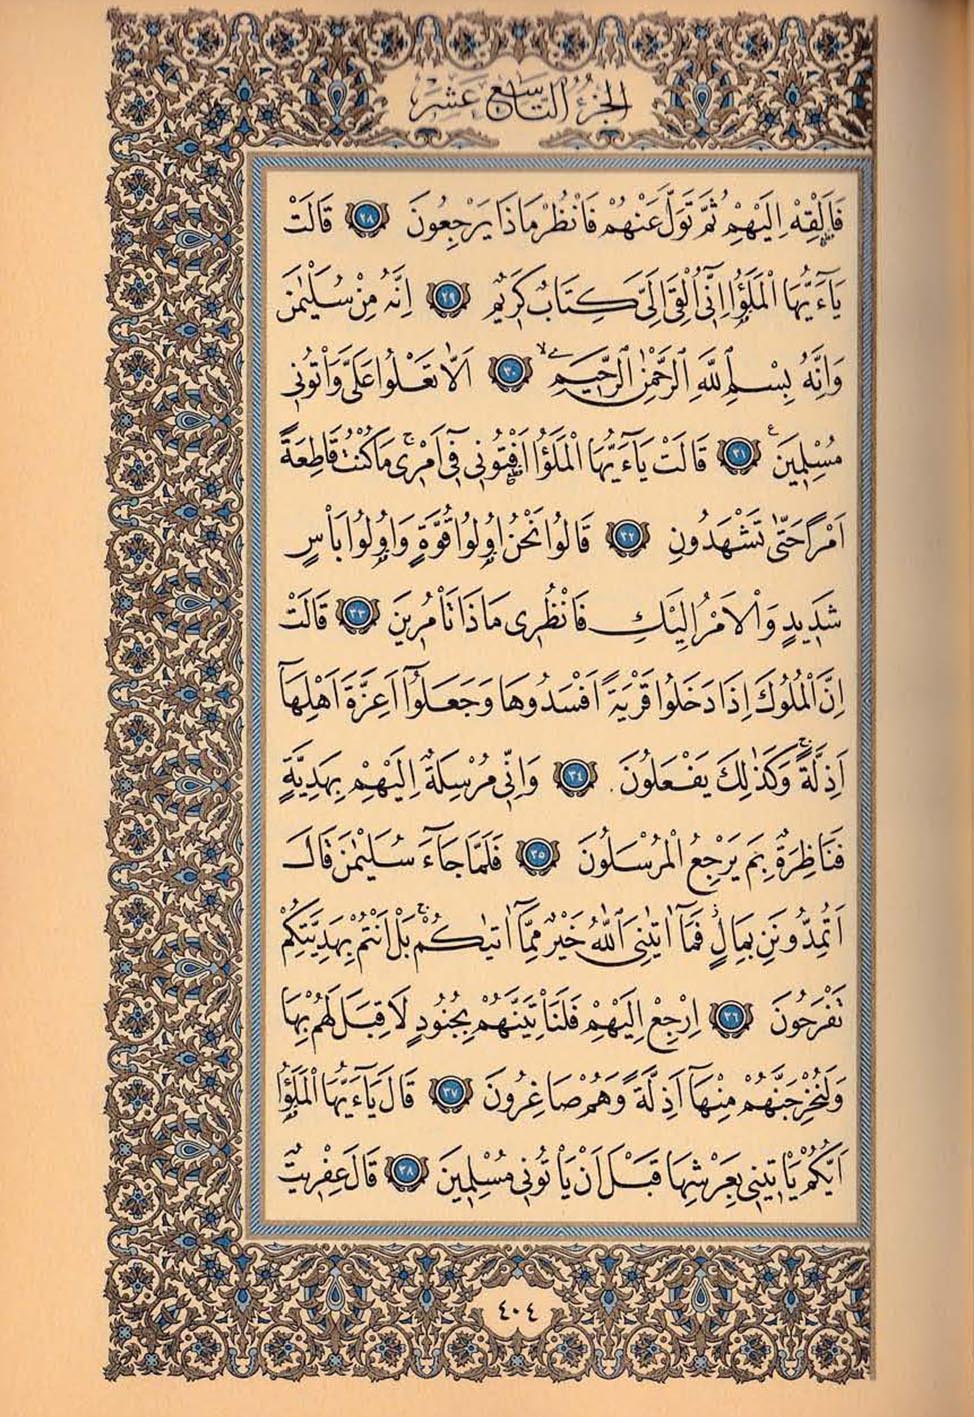 الجزء التاسع عشر
فَاَلْقِهْ اِلَيْهِمْ ثُمَّ تَوَلَّ عَنْهُمْ فَانْظُرْ مَاذَا يَرْجِعُونَ ﴿٢٨﴾ قَالَتْ
يَآءَيُّهَا الْمَلَؤُا اِنِّٓى اُلْقِىَ اِلَىَّ كِتَابٌ كَرِيمٌ ﴿٢٩﴾ اِنَّهُ مِنْ سُلَيْمٰنَ
وَاِنَّهُ بِسْمِ ٱللّٰهِ ٱلرَّحْمٰنِ ٱلرَّحِيمِ ﴿٣٠﴾ اَلَّا تَعْلُوا عَلَىَّ وَأْتُونِى
مُسْلِمِينَ ﴿٣١﴾ قَالَتْ يَآءَيُّهَا الْمَلَؤُا اَفْتُونِى فِٓى اَمْرِى مَا كُنْتُ قَاطِعَةً
اَمْرًا حَتّٰى تَشْهَدُونِ ﴿٣٢﴾ قَالُوا نَحْنُ اُولُوا قُوَّةٍ وَاُولُوا بَأْسٍ
شَدِيدٍ وَالْاَمْرُ اِلَيْكِ فَانْظُرِى مَاذَا تَأْمُرِينَ ﴿٣٣﴾ قَالَتْ
اِنَّ الْمُلُوكَ اِذَا دَخَلُوا قَرْيَةً اَفْسَدُوهَا وَجَعَلُوٓا اَعِزَّةَ اَهْلِهَآ
اَذِلَّةً وَكَذٰلِكَ يَفْعَلُونَ ﴿٣٤﴾ وَاِنِّى مُرْسِلَةٌ اِلَيْهِمْ بِهَدِيَّةٍ
فَنَاظِرَةٌ بِمَ يَرْجِعُ الْمُرْسَلُونَ ﴿٣٥﴾ فَلَمَّا جَآءَ سُلَيْمٰنَ قَالَ
اَتُمِدُّونَنِ بِمَالٍ فَمَآ اٰتٰينِىَ ٱللّٰهُ خَيْرٌ مِمَّآ اٰتٰيكُمْ بَلْ اَنْتُمْ بِهَدِيَّتِكُمْ
تَفْرَحُونَ ﴿٣٦﴾ اِرْجِعْ اِلَيْهِمْ فَلَنَأْتِيَنَّهُمْ بِجُنُودٍ لَا قِبَلَ لَهُمْ بِهَا
وَلَنُخْرِجَنَّهُمْ مِنْهَآ اَذِلَّةً وَهُمْ صَاغِرُونَ ﴿٣٧﴾ قَالَ يَآءَيُّهَا الْمَلَؤُا
اَيُّكُمْ يَأْتِينِى بِعَرْشِهَا قَبْلَ اَنْ يَأْتُونِى مُسْلِمِينَ ﴿٣٨﴾ قَالَ عِفْرِيتٌ
٤٠٤